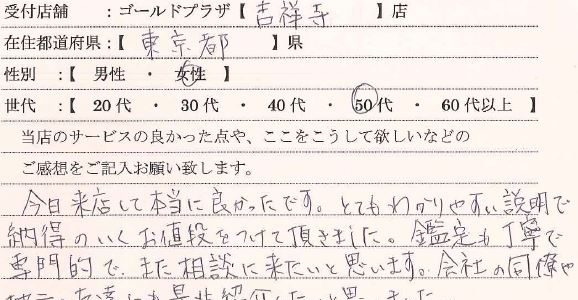 受付店舗 :ゴールドプラザ【 吉祥寺 】店
在住都道府県:【 東京都 】県
性別 :【 男性 ・ 女性 】
世代 :【 20代 ・ 30代 ・ 40代 ・ 50代 ・ 60代以上 】
当店のサービスの良かった点や、ここをこうして欲しいなどの
ご感想をご記入お願い致します。
今日来店して本当に良かったです。とてもわかりやすい説明で
納得のいくお値段をつけて頂きました。鑑定も丁寧で
専門的で、また相談に来たいと思います。会社の同僚や
友達にも是非紹介したいと思いました